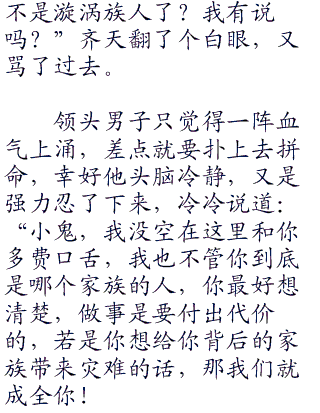 不是漩涡族人了？我有说
吗？”齐天翻了个白眼，又
骂了过去。
领头男子只觉得一阵血
气上涌，差点就要扑上去拼
命，幸好他头脑冷静，又是
强力忍了下来，冷冷说道：
“小鬼，我没空在这里和你
多费口舌，我也不管你到底
是哪个家族的人，你最好想
清楚，做事是要付出代价
的，若是你想给你背后的家
族带来灾难的话，那我们就
成全你！